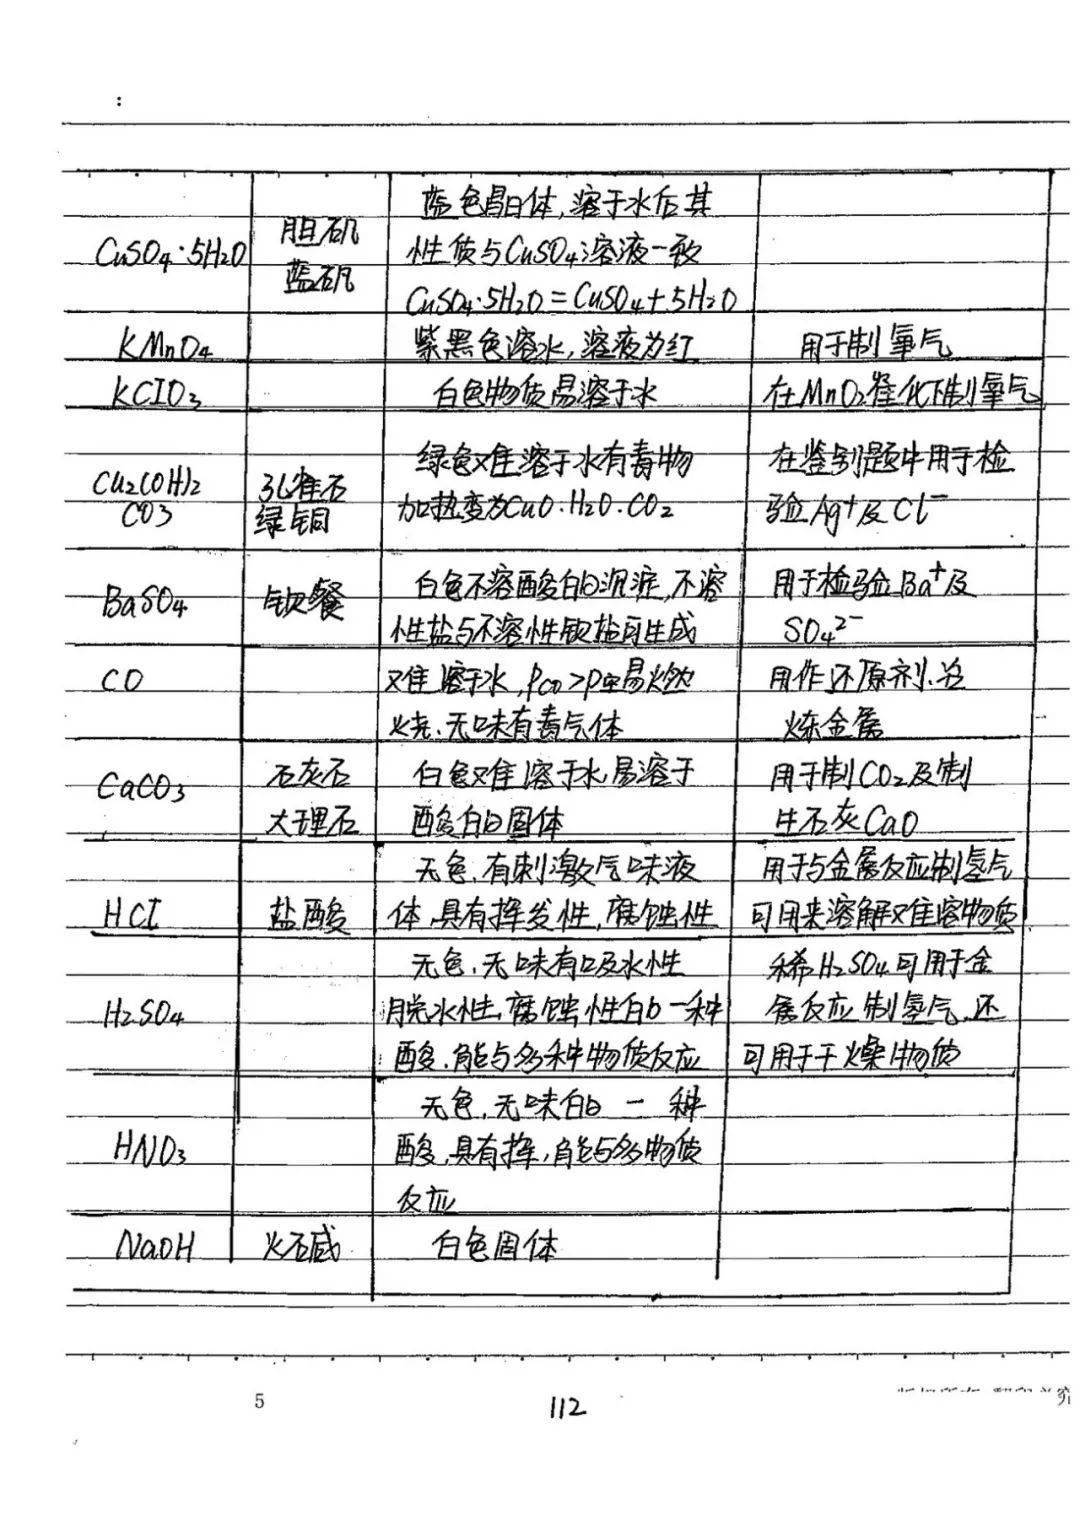 :
蓝色晶体,溶于水后其
CuSO4·5H2O
胆矾
蓝矾
性质与CuSO4溶液一致
CuSO4·5H2O=CuSO4+5H2O
KMnO4
紫黑色溶水,溶液为红
用于制氧气
KClO3
白色物质易溶于水
在MnO2催化下制氧气
Cu2(OH)2
CO3
孔雀石
绿铜
绿色难溶于水有毒物
加热变为CuO·H2O·CO2
在鉴别题中用于检
验Ag+及Cl-
BaSO4
钡餐
白色不溶酸的沉淀,不溶
性盐与不溶性钡盐可生成
用于检验Ba+及
SO4 2-
CO
难溶于水,ρco>ρ空易燃
烧、无味有毒气体
用作还原剂、冶
炼金属
CaCO3
石灰石
大理石
白色难溶于水,易溶于
酸的固体
用于制CO2及制
生石灰CaO
HCl
盐酸
无色,有刺激气味液
体,具有挥发性,腐蚀性
用于与金属反应制氢气
可用来溶解难溶物质
H2SO4
无色,无味有吸水性
脱水性,腐蚀性的一种
酸,能与多种物质反应
稀H2SO4可用于金
属反应制氢气,还
可用于干燥物质
HNO3
无色,无味的一种
酸,具有挥,能与多物质
反应
NaOH
火石碱
白色固体
5
112